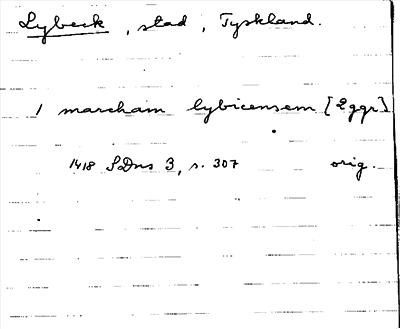 Lybeck, stad, Tyskland.
1 marcham lybicensem [2ggr]
1418 SDns 3, s. 307 orig.